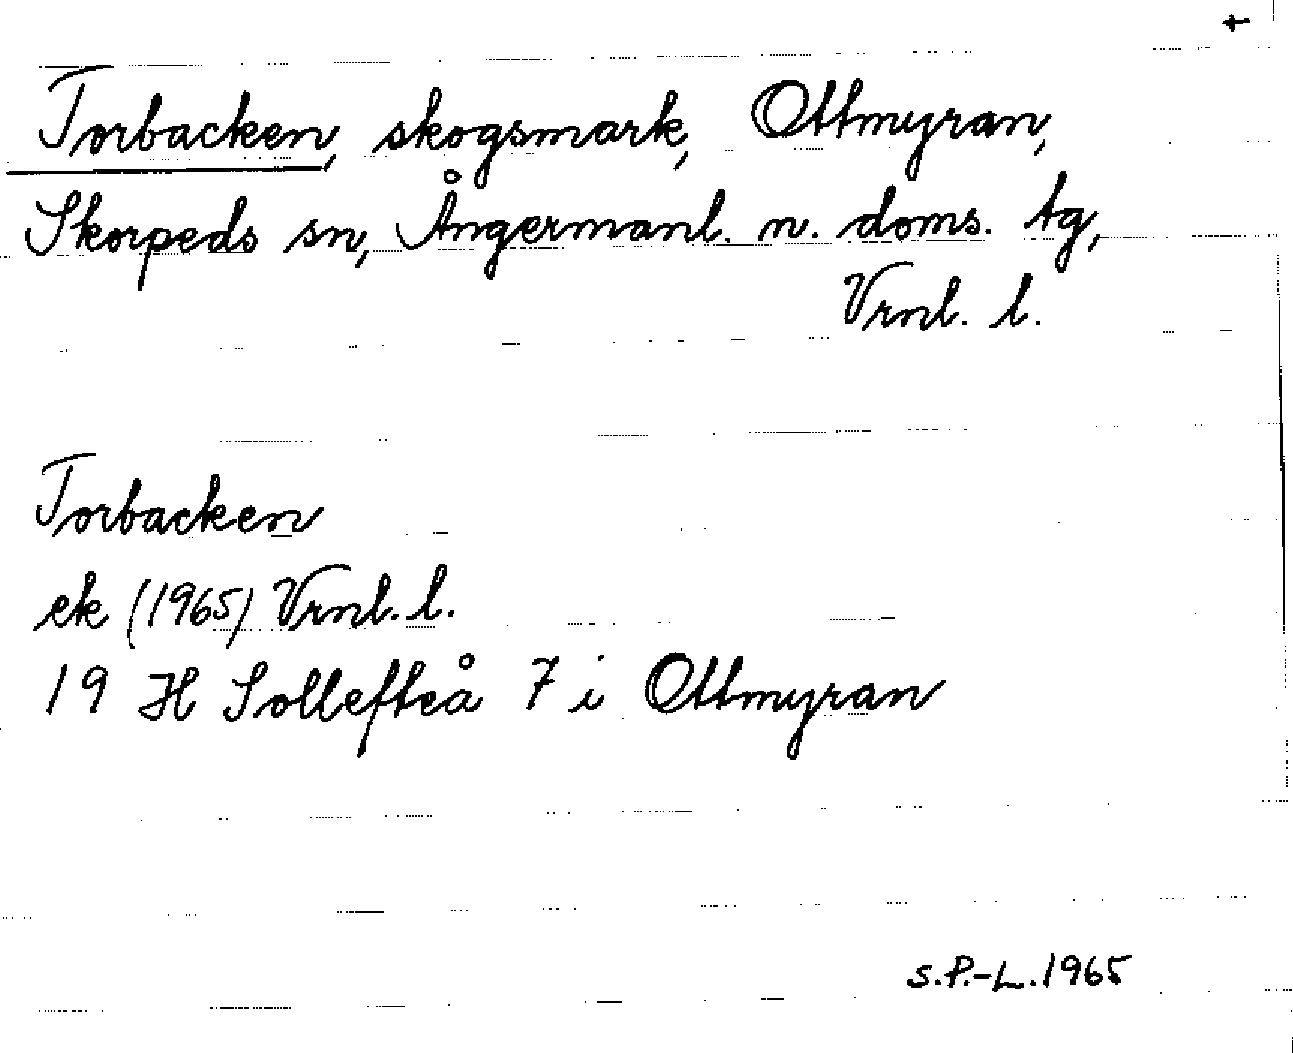 +
Torbacken, skogsmark, Ottmyran,
Skorpeds sn, Ångermanl. n. doms. tg,
Vrnl. l.
Torbacken
ek (1965) Vrnl. l.
19 H Sollefteå 7 i Ottmyran
S.P.-L. 1965